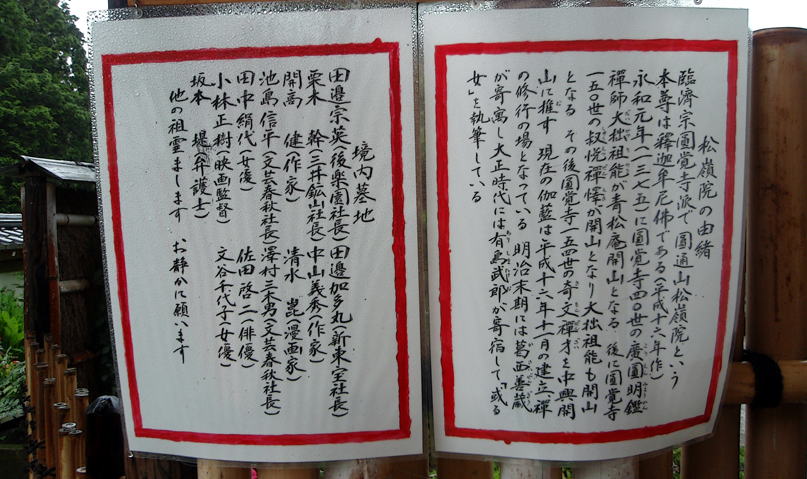 松嶺院の由緒
臨濟宗圓覚寺派で圓通山松嶺院という
本尊は釋迦牟尼佛である(平成十六年作)
永和元年(一三七五)に圓覚寺四〇世の廣圓明鑑
禪師大拙祖能が青松庵開山となる 後に圓覚寺
一五〇世の叔悦禪懌が開山となり大拙祖能も開山
となる その後圓覚寺一五四世の奇文禪才を中興開
山に推す 現在の伽藍は平成十六年十一月の建立 禪
の修行の場となっている 明治末期には葛西善藏
が寄寓し大正時代には有島武郎が寄宿して「或る
女」を執筆している
境内墓地
田邉宗英(後楽園社長)田邉加多丸(新東宝社長)
栗木 幹(三井鉱山社長)中山義秀(作家)
開高 健(作家) 清水 崑(漫画家)
池島信平(文芸春秋社長)澤村三木男(文芸春秋社長)
田中絹代(女優) 佐田啓二(俳優)
小林正樹(映画監督) 文谷千代子(女優)
坂本 堤(弁護士)
他の祖霊まします お静かに願います